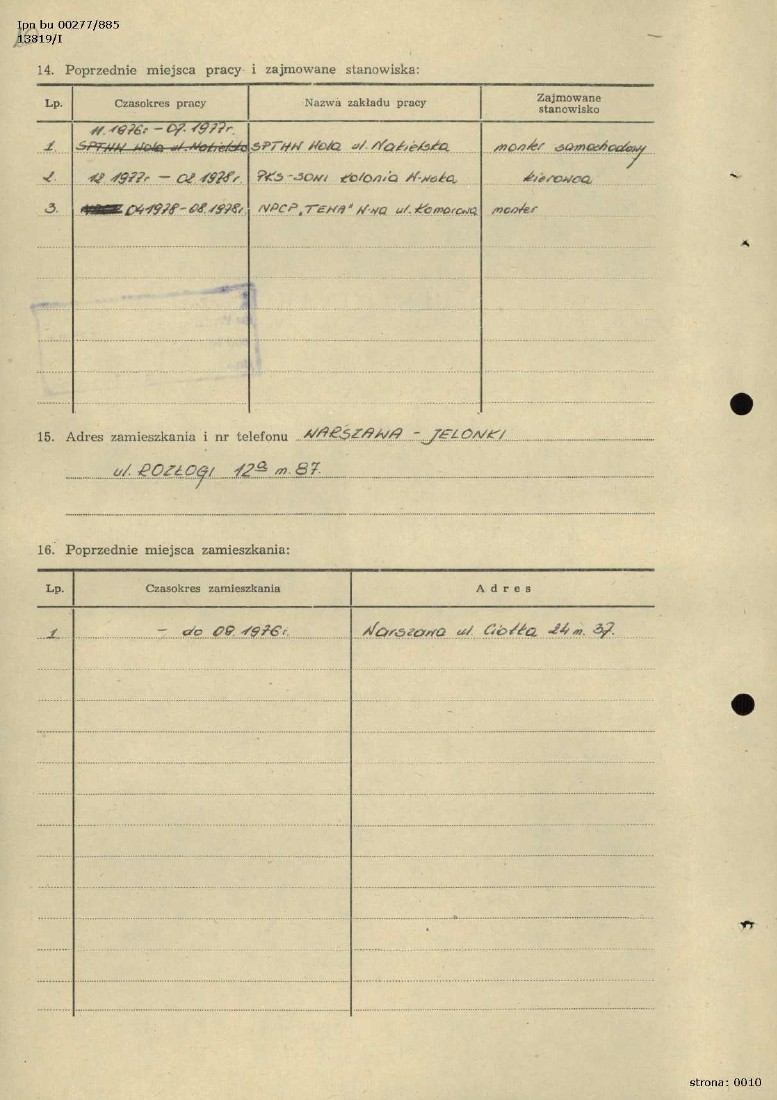 Ipn bu 00277/885
13819/I
14. Poprzednie miejsca pracy i zajmowane stanowiska:
Lp. Czasokres pracy Nazwa zakładu pracy Zajmowane stanowisko
11.1976r - 07.1977r.
1. SPTHW Wola ul. Nakielska SPTHW Wola ul. Nakielska monter samochodowy
2. 12 1977r - 02 1978r. PKS-SONI Kolonia W-wska kierowca
3. 04 1978 - 08.1978r. NPCP "TEHA" W-wa ul. Komorowa monter
15. Adres zamieszkania i nr telefonu WARSZAWA - JELONKI
ul. ROZŁOGI 12a m. 87.
16. Poprzednie miejsca zamieszkania:
Lp. Czasokres zamieszkania Adres
1. - do 09.1976r. Warszawa ul. Ciołka 24 m. 37.
strona: 0010